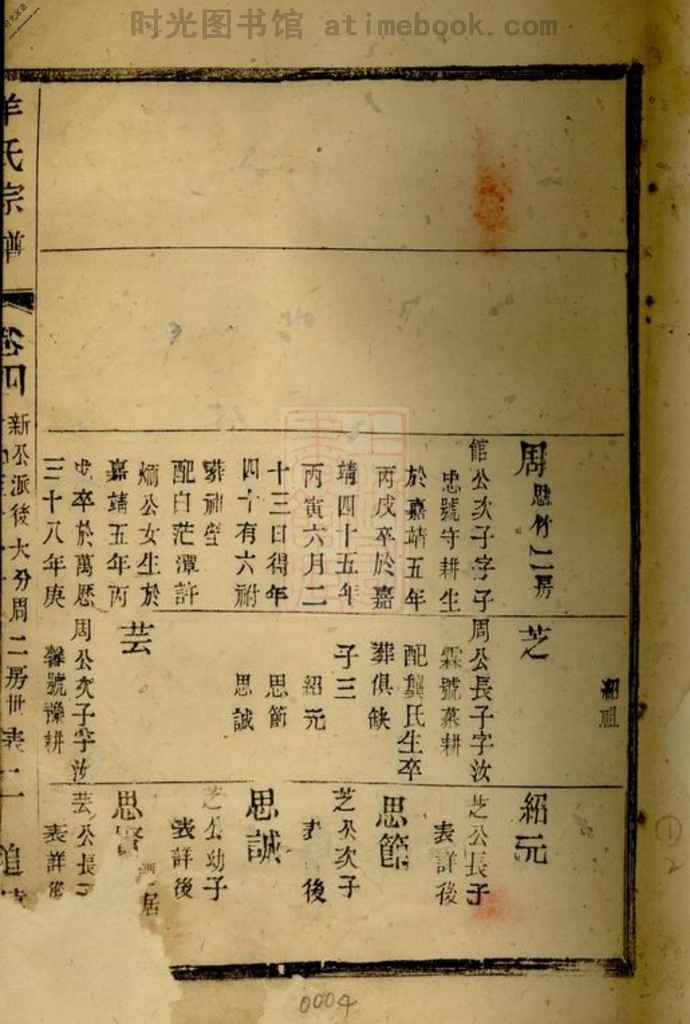 时光图书馆 atimebook.com
紹祖
周
二房
館公次子字子
忠號守耕生
於嘉靖五年
丙戌卒於嘉
靖四十五年
丙寅六月二
十三日得年
四十有六祔
葬祖塋
配白茫潭許
公女生於
嘉靖五年丙
戌卒於萬歷
三十八年庚
芝
周公長子字汝
霖號菜耕
配龔氏生卒
葬俱缺
子三
紹元
思節
思誠
芸
周公次子字汝
馨號豫耕
紹元
芝公長子
表詳後
思節
芝公次子
表 後
思誠
芝公幼子
表詳後
思賢
居
芸公長
表詳
羊氏宗譜
卷四
新丕派後大分周二房世表二
追
0004